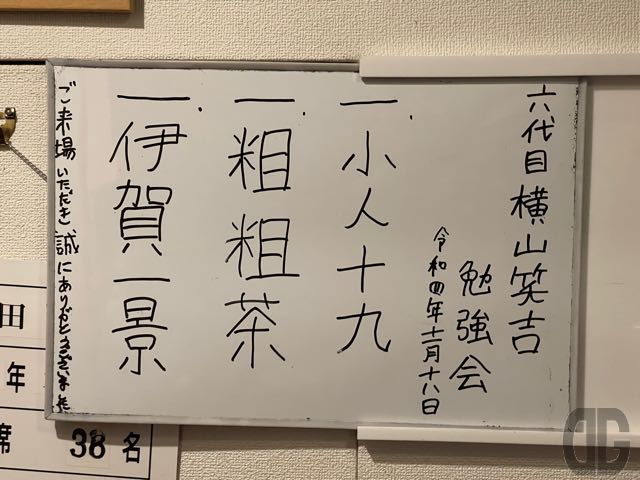 六代目横山笑吉
勉強会
令和四年十二月十八日
一、小人十九
一、粗粗茶
一、伊賀一景
ご来場いただき誠にありがとうございました
田
年
席 38名